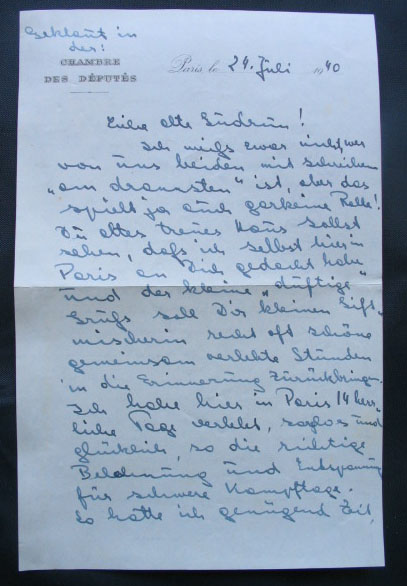 Geklaut in
der:
CHAMBRE
DES DÉPUTÉS
Paris, le 24. Juli 1940
Liebe alte Gudrun!
Ich weiß zwar nicht, wer
von uns beiden mit schreiben
„am dransten" ist, aber das
spielt ja auch garkeine Rolle!
Du altes treues Haus sollst
sehen, daß ich selbst hier in
Paris an Dich gedacht habe
und der kleine „duftige"
Gruß soll Dir kleinen Gift-
mischerin recht oft schöne
gemeinsam verlebte Stunden
in die Erinnerung zurückbringen.
Ich habe hier in Paris 14 herr-
liche Tage verlebt, sorglos und
glücklich, so die richtige
Belohnung und Entspannung
für schwere Kampftage.
So hatte ich genügend Zeit,